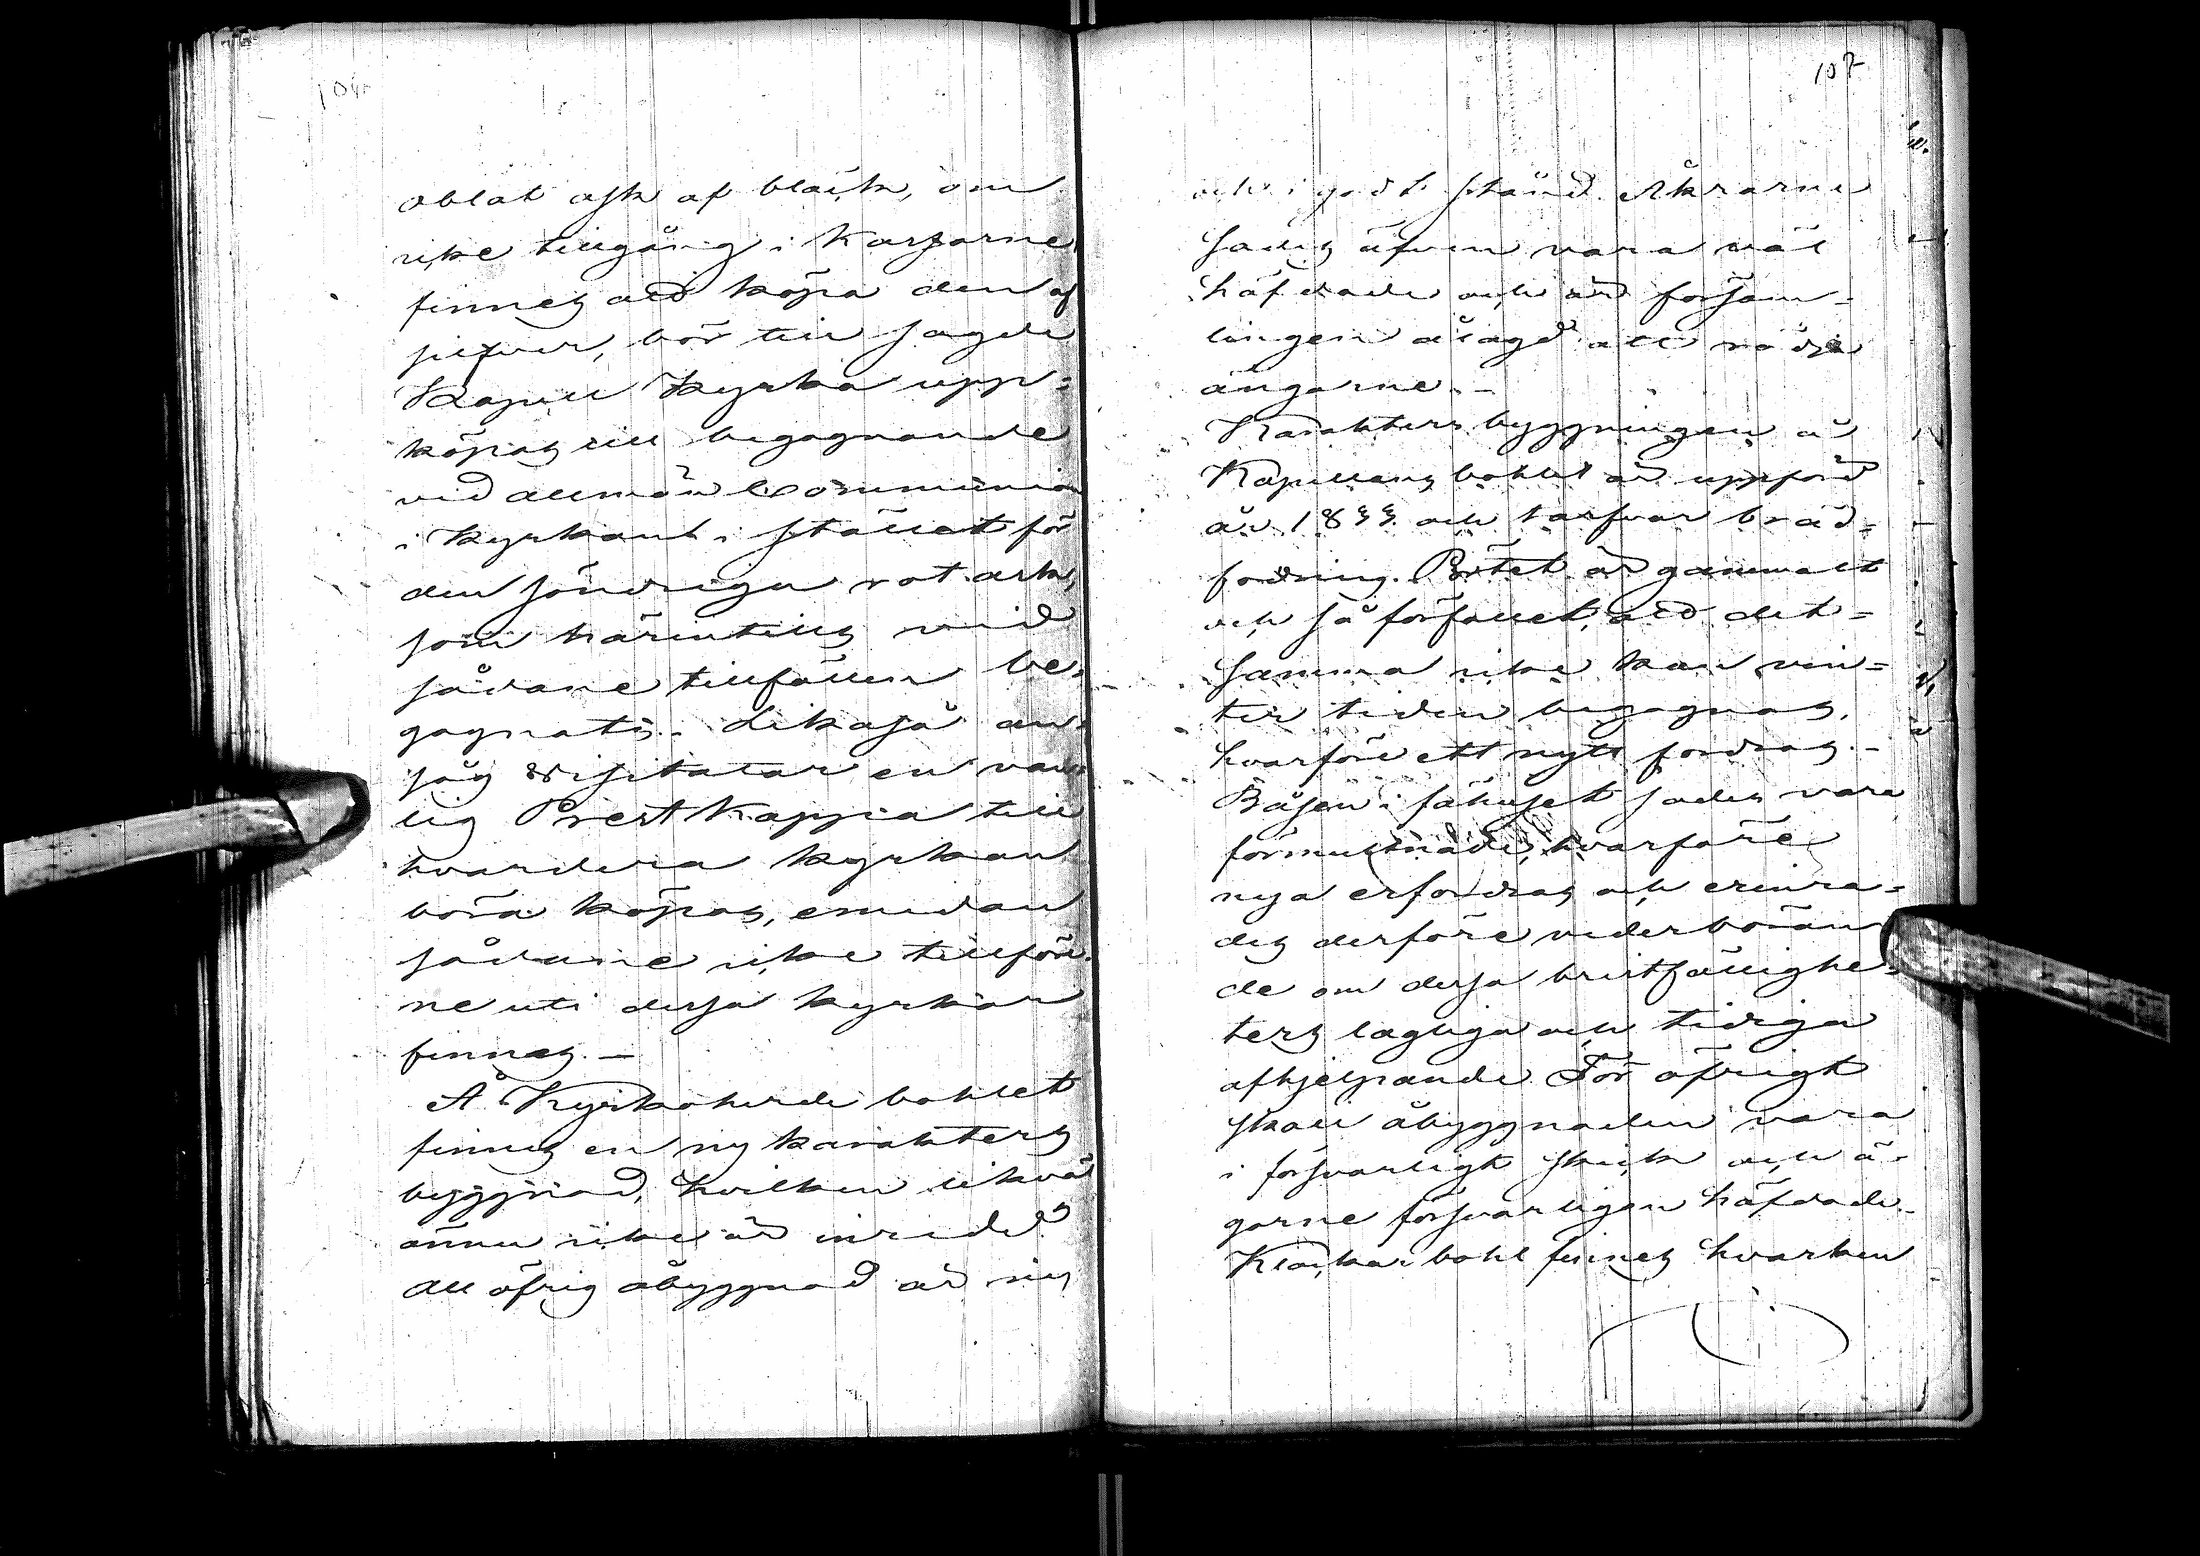 106
oblat ask af bläck, om
icke tillgång i Kassorne
finnes att köpa den af
silfver, bör till sagde
Kapell Kyrka upp-
köpas till begagnande
vid allmän Communion
i Kyrkan i stället för
den söndriga rot ask,
som härintills vid
sådane tillfällen be-
gagnats. Likaså an-
såg Visitator en van-
lig Prest Kappa till
hvardera kyrkan
böra köpas, emedan
sådane icke tillföre-
ne uti dessa kyrkor
finnas. —
Å Kyrkoherde bohlet
finnes en ny karakters
byggnad, hvilken likväl
ännu icke är inredd
All öfrig åbyggnad är ny
107
och i godt stånd. Åkrarne
sades äfven vara väl
häfdade och är försam-
lingen ålagd att rödja
ängarne. —
Karakters byggningen å
Kapellans bohlet är uppförd
år 1833 och tarfvar bräd-
fodring. Pörtet är gammalt
och så förfallet, att det-
samma icke kan vin-
ter tiden begagnas,
hvarföre ett nytt fordras. —
Båsen i fähuset sades vara
förmultnade, hvarföre
nya erfordras och erinra-
des derföre vederböran
de om dessa bristfällighe-
ters lagliga och tidiga
afhjelpande. För öfrigt
skall åbyggnaden vara
i försvarligt skick och ä-
gorne försvarligen häfdade.
Klockar bohl finnes hvarken